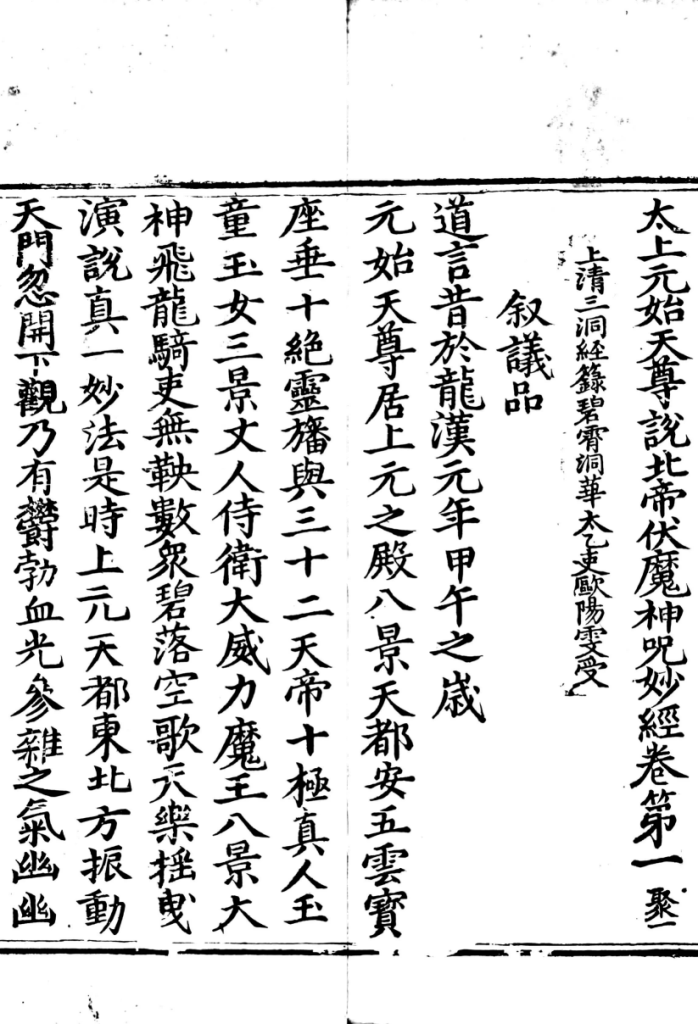 太上元始天尊說北帝伏魔神呪妙經卷第一 聚一
上清三洞經籙碧霄洞華太乙吏歐陽雯受
叙議品
道言昔於龍漢元年甲午之歲
元始天尊居上元之殿八景天都安五雲寶
座垂十絶靈旛與三十二天帝十極真人玉
童玉女三景丈人侍衛大威力魔王八景大
神飛龍騎吏無鞅數衆碧落空歌天樂揺曳
演說真一妙法是時上元天都東北方振動
天門忽開下觀乃有欝勃血光參雜之氣幽幽